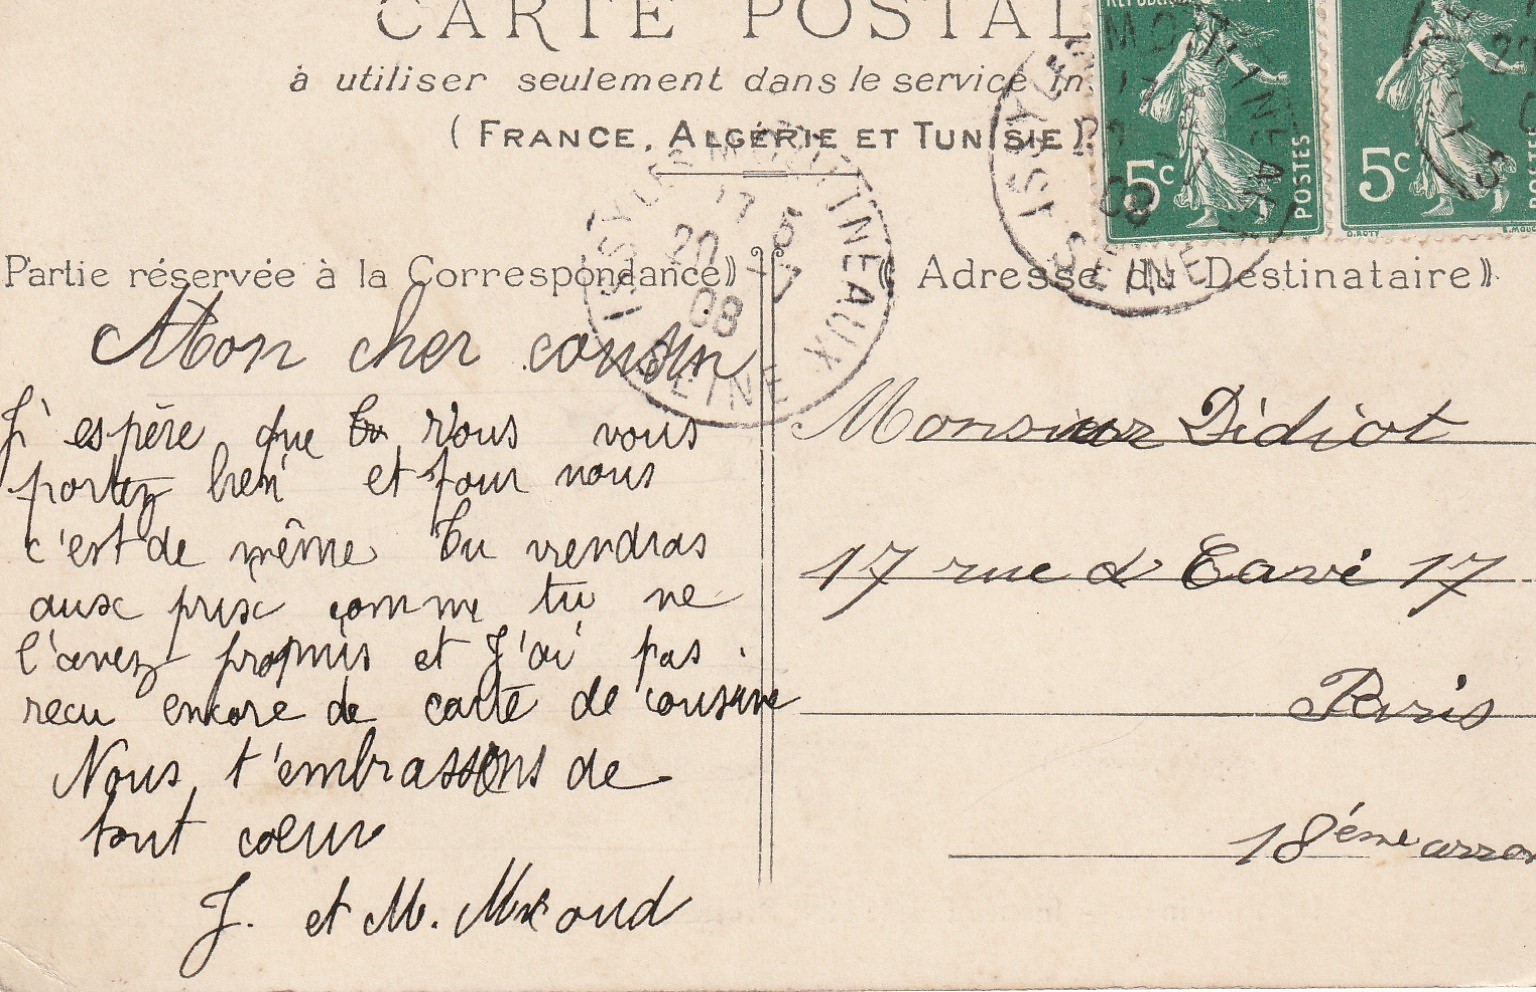 CARTE POSTAL
à utiliser seulement dans le service in
(FRANCE, ALGÉRIE ET TUNISIE)
5c POSTES
5c
O. ROTY
ISSY LES MOULINEAUX
17 5
20 -7
08
SEINE
Partie réservée à la Correspondance
Adresse du Destinataire
Mon cher cousin
J'espère que vous vous
portez bien et pour nous
c'est de même Tu viendras
aux prix comme tu ne
l'avez promis et J'ai pas
recu encore de carte de cousine
Nous t'embrassons de
tout cœur
J. et M.
Monsieur Didiot
17 rue d Cavé 17
Paris
18ème arron